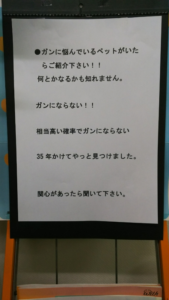 ●ガンに悩んでいるペットがいた
らご紹介下さい！！
何とかなるかも知れません。
ガンにならない！！
相当高い確率でガンにならない
35年かけてやっと見つけました。
関心があったら聞いて下さい。